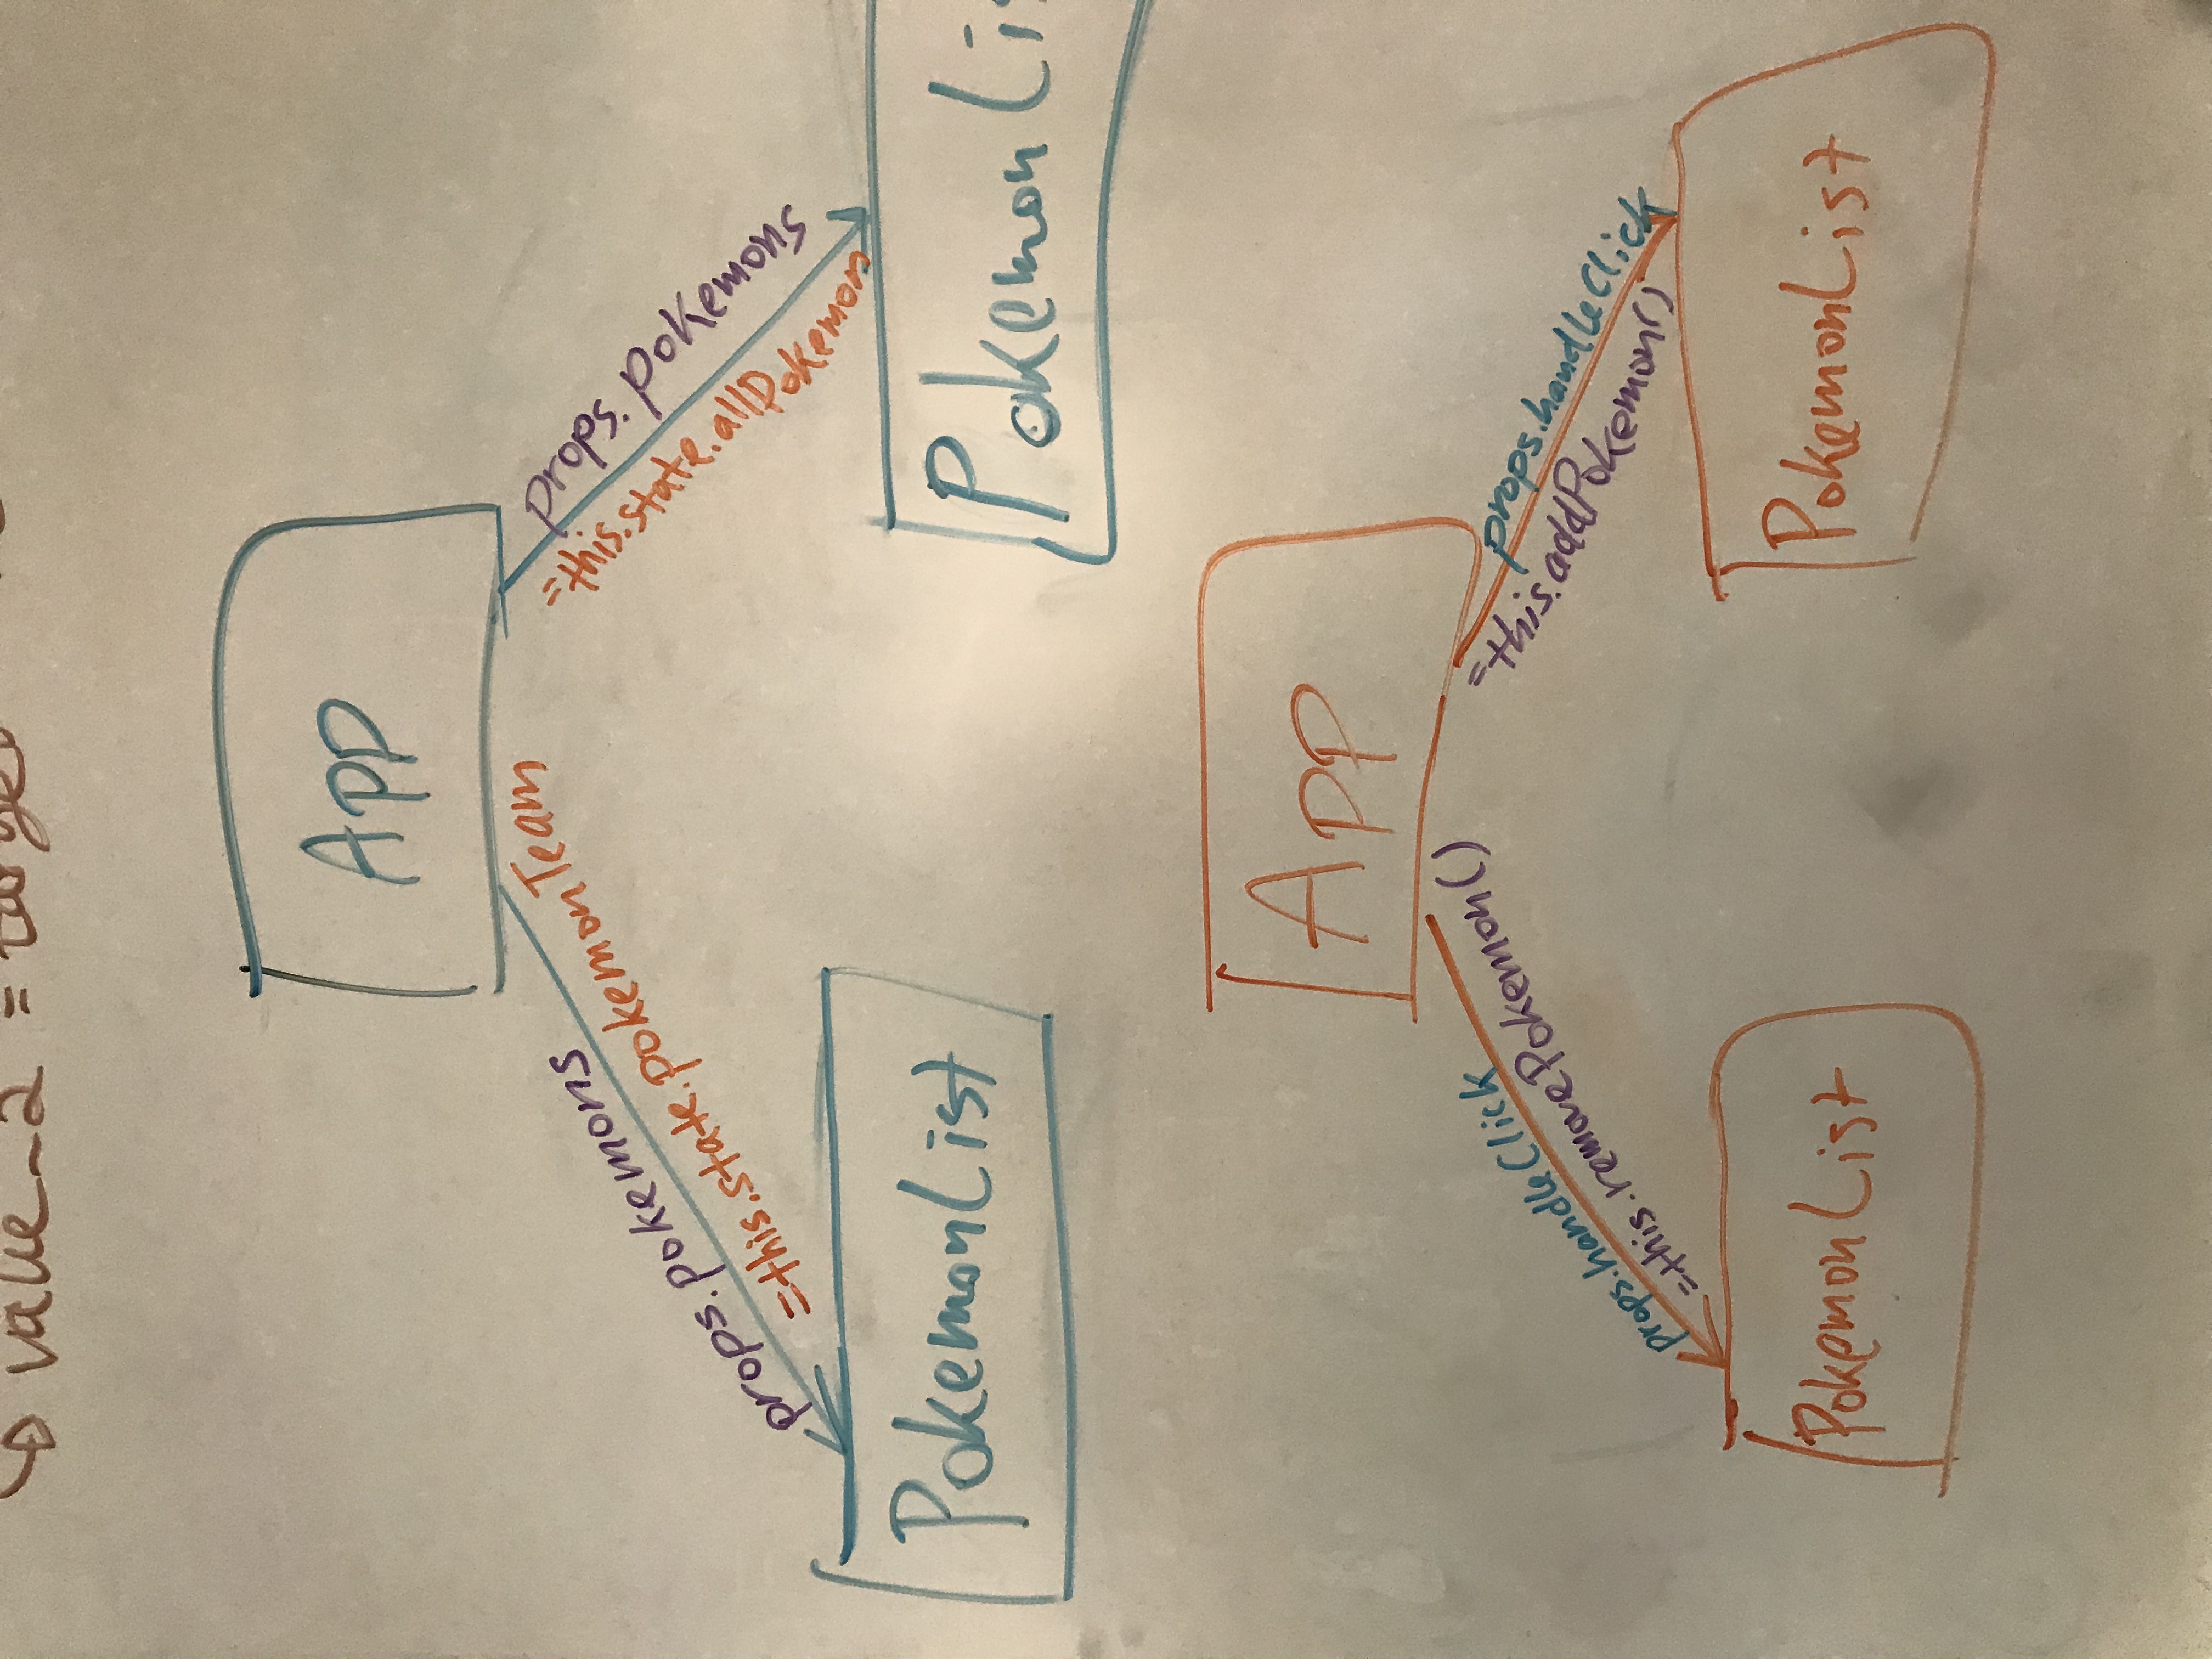 value_2 = target
App
props.pokemons
=this.state.pokemonTeam
props.pokemons
=this.state.allPokemon
PokemonList
PokemonLis
App
props.handleClick
=this.removePokemon()
props.handleClick
=this.addPokemon()
PokemonList
PokemonList